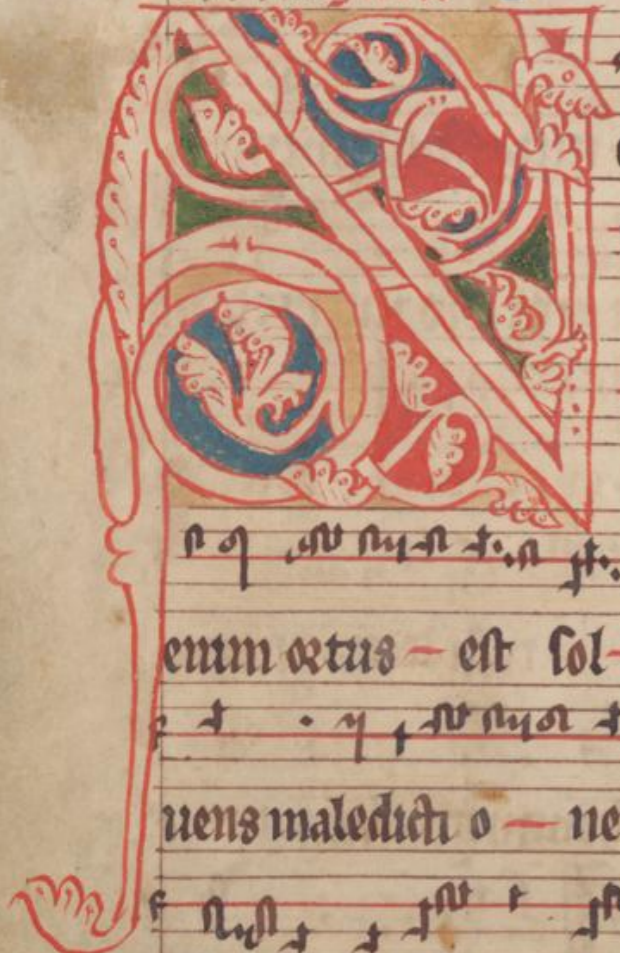 N
enim ortus est sol
uens maledicti o ne